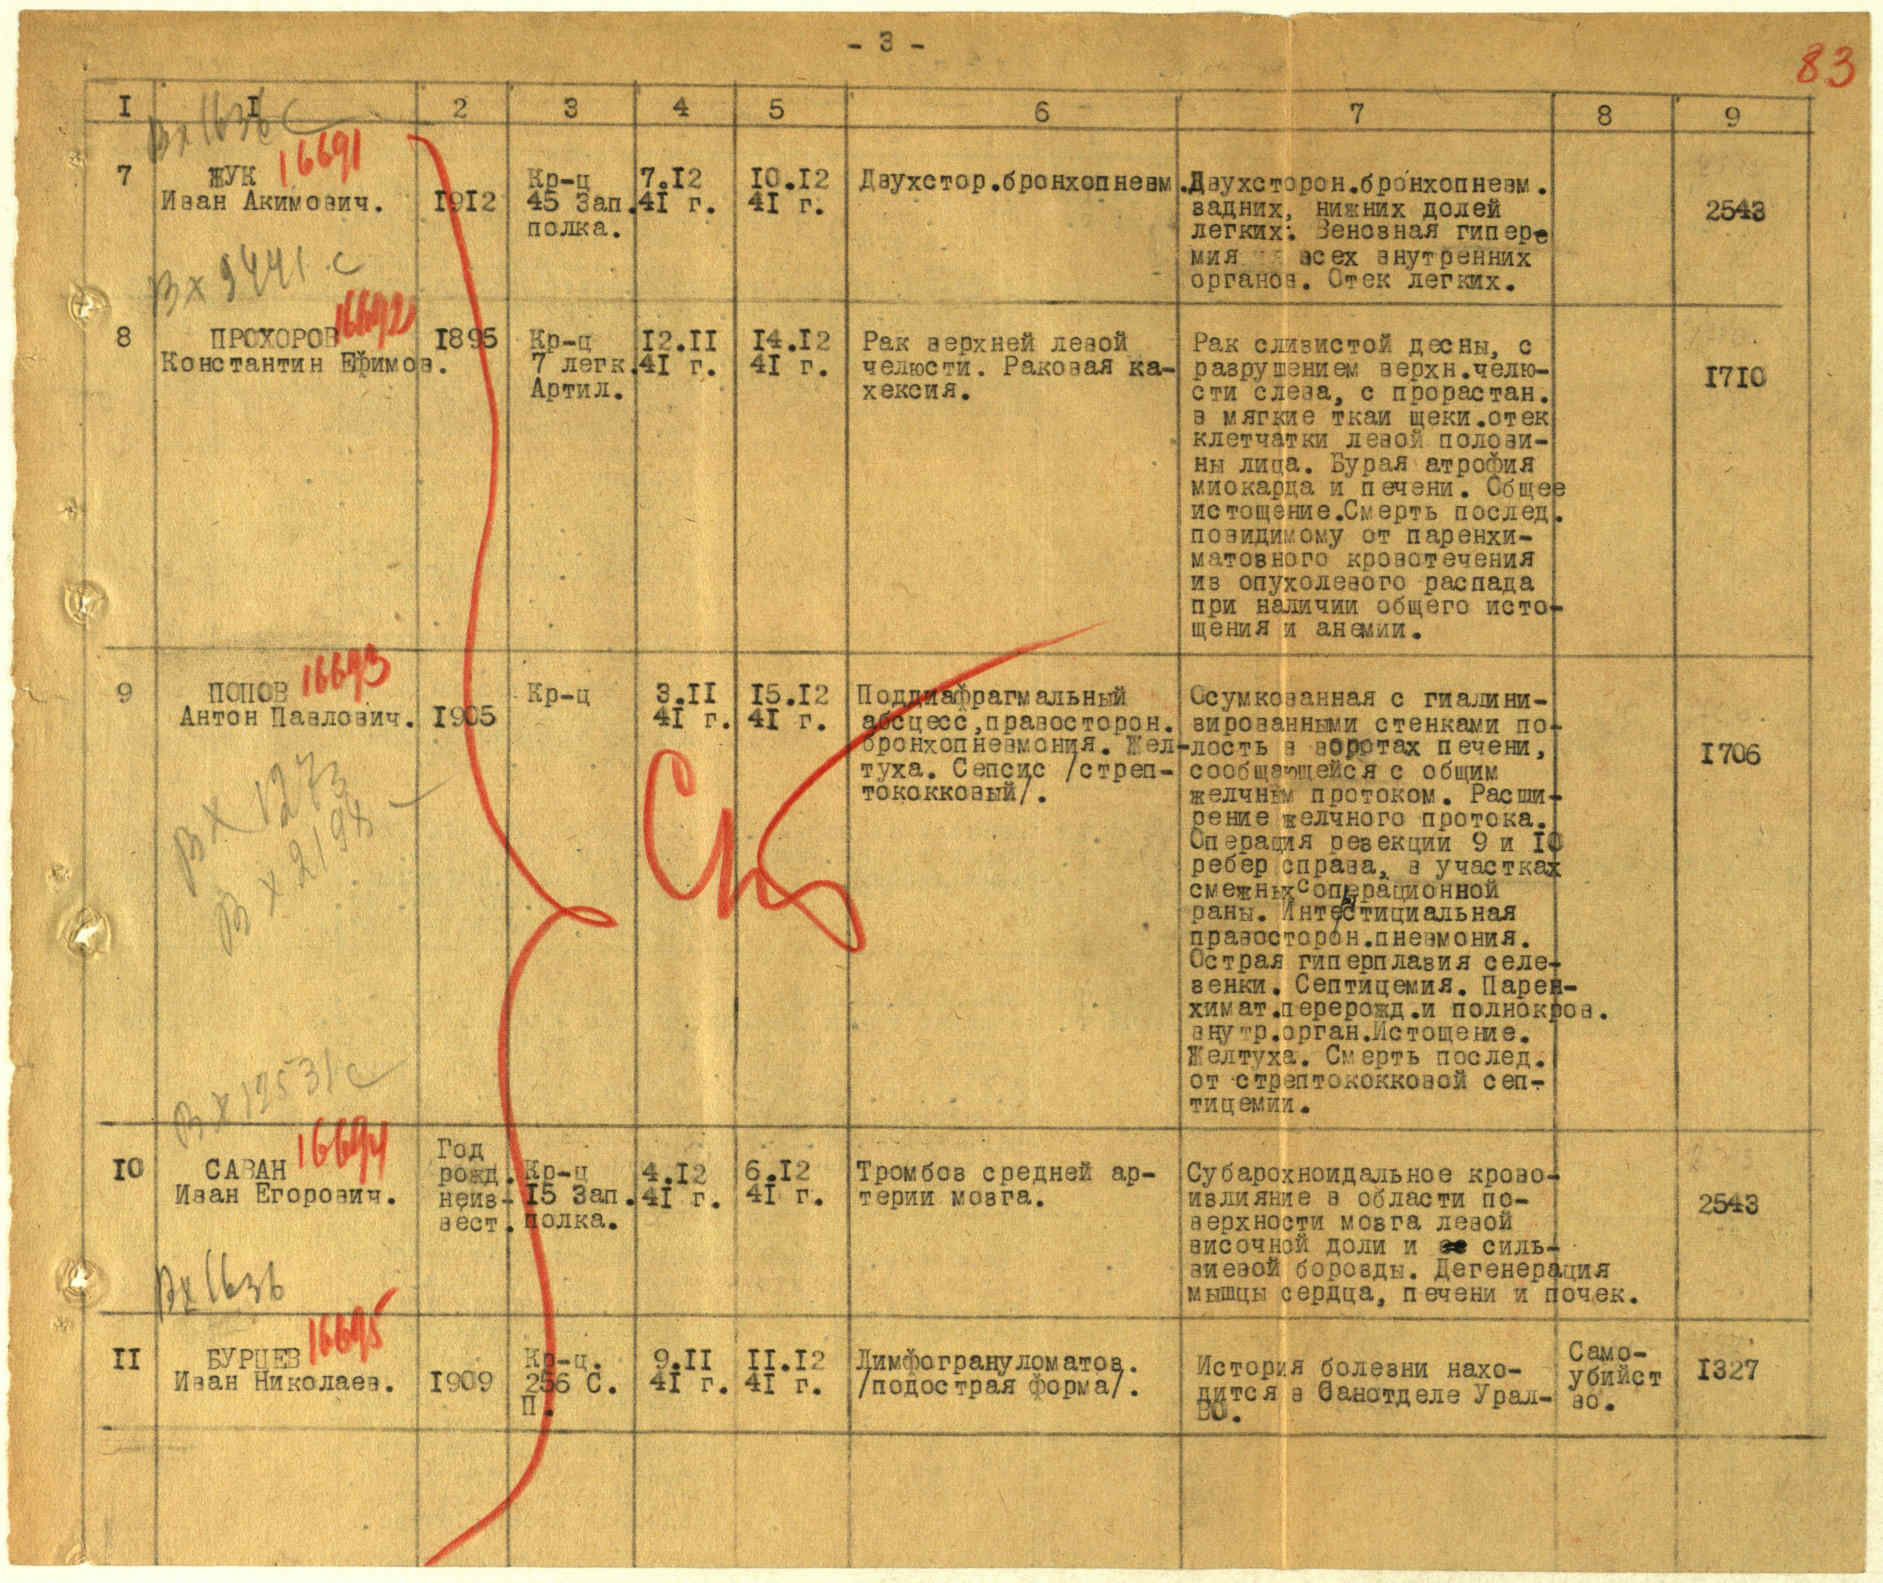 - 3 -
83
I I 2 3 4 5 6 7 8 9
Вх 1636 с
16691
7 ЖУК
Иван Акимович. 1912
Кр-ц
45 Зап.
полка.
7.12
41 г.
10.12
41 г.
Двухстор.бронхопневм.
Двухсторон.бронхопневм.
задних, нижних долей
легких. Венозная гипере
мия всех внутренних
органов. Отек легких.
2543
Вх 9441 с
16692
8 ПРОХОРОВ 1895
Константин Ефимов.
Кр-ц
7 легк.
Артил.
12.II
41 г.
14.12
41 г.
Рак верхней левой
челюсти. Раковая ка-
хексия.
Рак слизистой десны, с
разрушением верхн.челю-
сти слева, с прорастан.
в мягкие ткаи щеки.отек
клетчатки левой полови-
ны лица. Бурая атрофия
миокарда и печени. Общее
истощение.Смерть послед.
повидимому от паренхи-
матовного кровотечения
из опухолевого распада
при наличии общего исто-
щения и анемии.
1710
16693
9 ПОПОВ
Антон Павлович. 1905
Кр-ц
3.II
41 г.
15.12
41 г.
Поддиафрагмальный
абсцесс,правосторон.
бронхопневмония. Жел-
туха. Сепсис /стреп-
тококковый/.
Осумкованная с гиалини-
вированными стенками по-
лость в воротах печени,
сообщающейся с общим
желчным протоком. Расши-
рение желчного протока.
Операция резекции 9 и 10
ребер справа, в участках
смежных с операционной
раны. Интестициальная
правосторон.пневмония.
Острая гиперплазия селе-
зенки. Септицемия. Парен-
химат.перерожд.и полнокров.
внутр.орган.Истощение.
Желтуха. Смерть послед.
от стрептококковой сеп-
тицемии.
1706
Вх 1273
Вх 2198
Вх 12531 с
16694
10 САВАН
Иван Егорович.
Год
рожд.
неиз-
вест.
Кр-ц
15 Зап.
полка.
4.12
41 г.
6.12
41 г.
Тромбоз средней ар-
терии мозга.
Субарохноидальное крово-
излияние в области по-
верхности мозга левой
височной доли и силь-
виевой борозды. Дегенерация
мышцы сердца, печени и почек.
2543
Вх 1636
16695
II БУРЦЕВ
Иван Николаев. 1909
Кр-ц.
256 С.
П.
9.II
41 г.
II.12
41 г.
Лимфогрануломатоз.
/подострая форма/.
История болезни нахо-
дится в Санотделе Урал-
ВО.
Само-
убийст
во.
1327